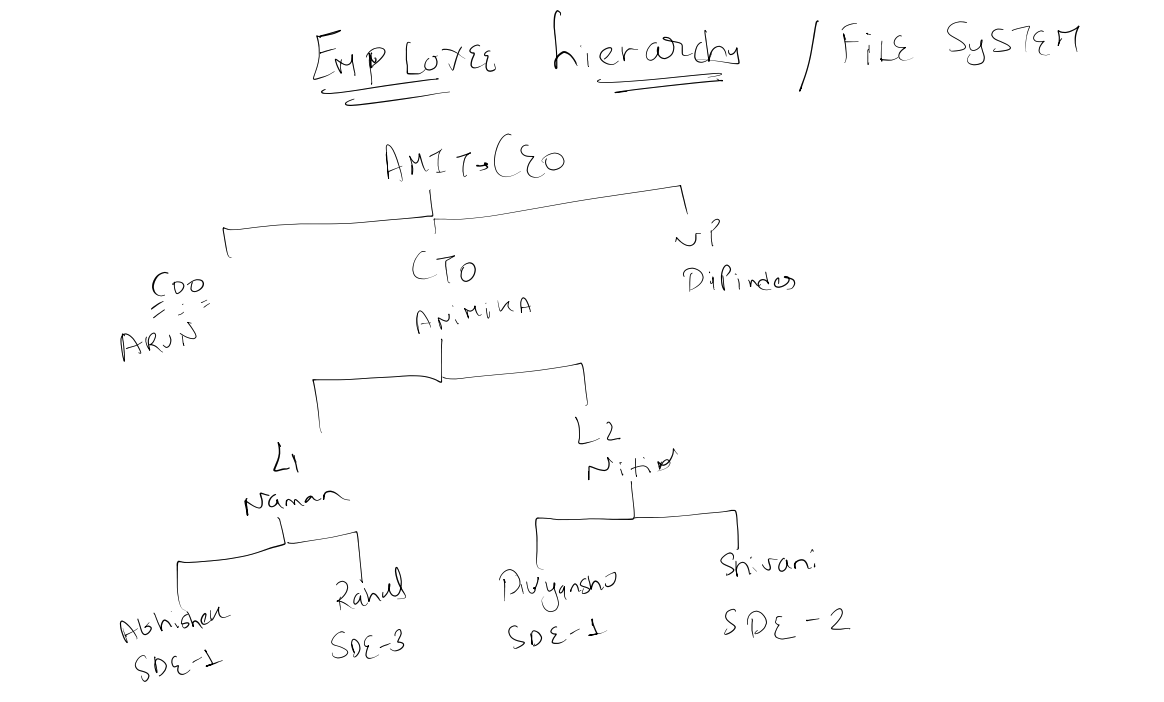 EMPLOYEE hierarchy / FILE SYSTEM
AMIT → CEO
COO
ARUN
CTO
ANIMIKA
VP
Dipinder
L1
Naman
L2
Nitin
Abhishek
SDE-1
Rahul
SDE-3
Divyanshu
SDE-1
Shivani
SDE-2